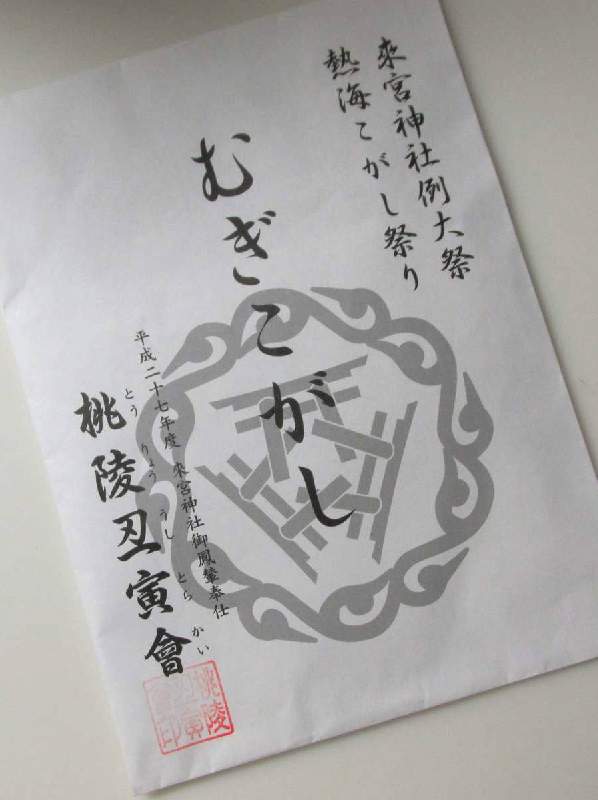 來宮神社例大祭
熱海こがし祭り
むぎこがし
平成二十七年度 來宮神社御鳳輦奉仕
とう りょう うし とら かい
桃陵丑寅會
桃陵
丑寅
會印